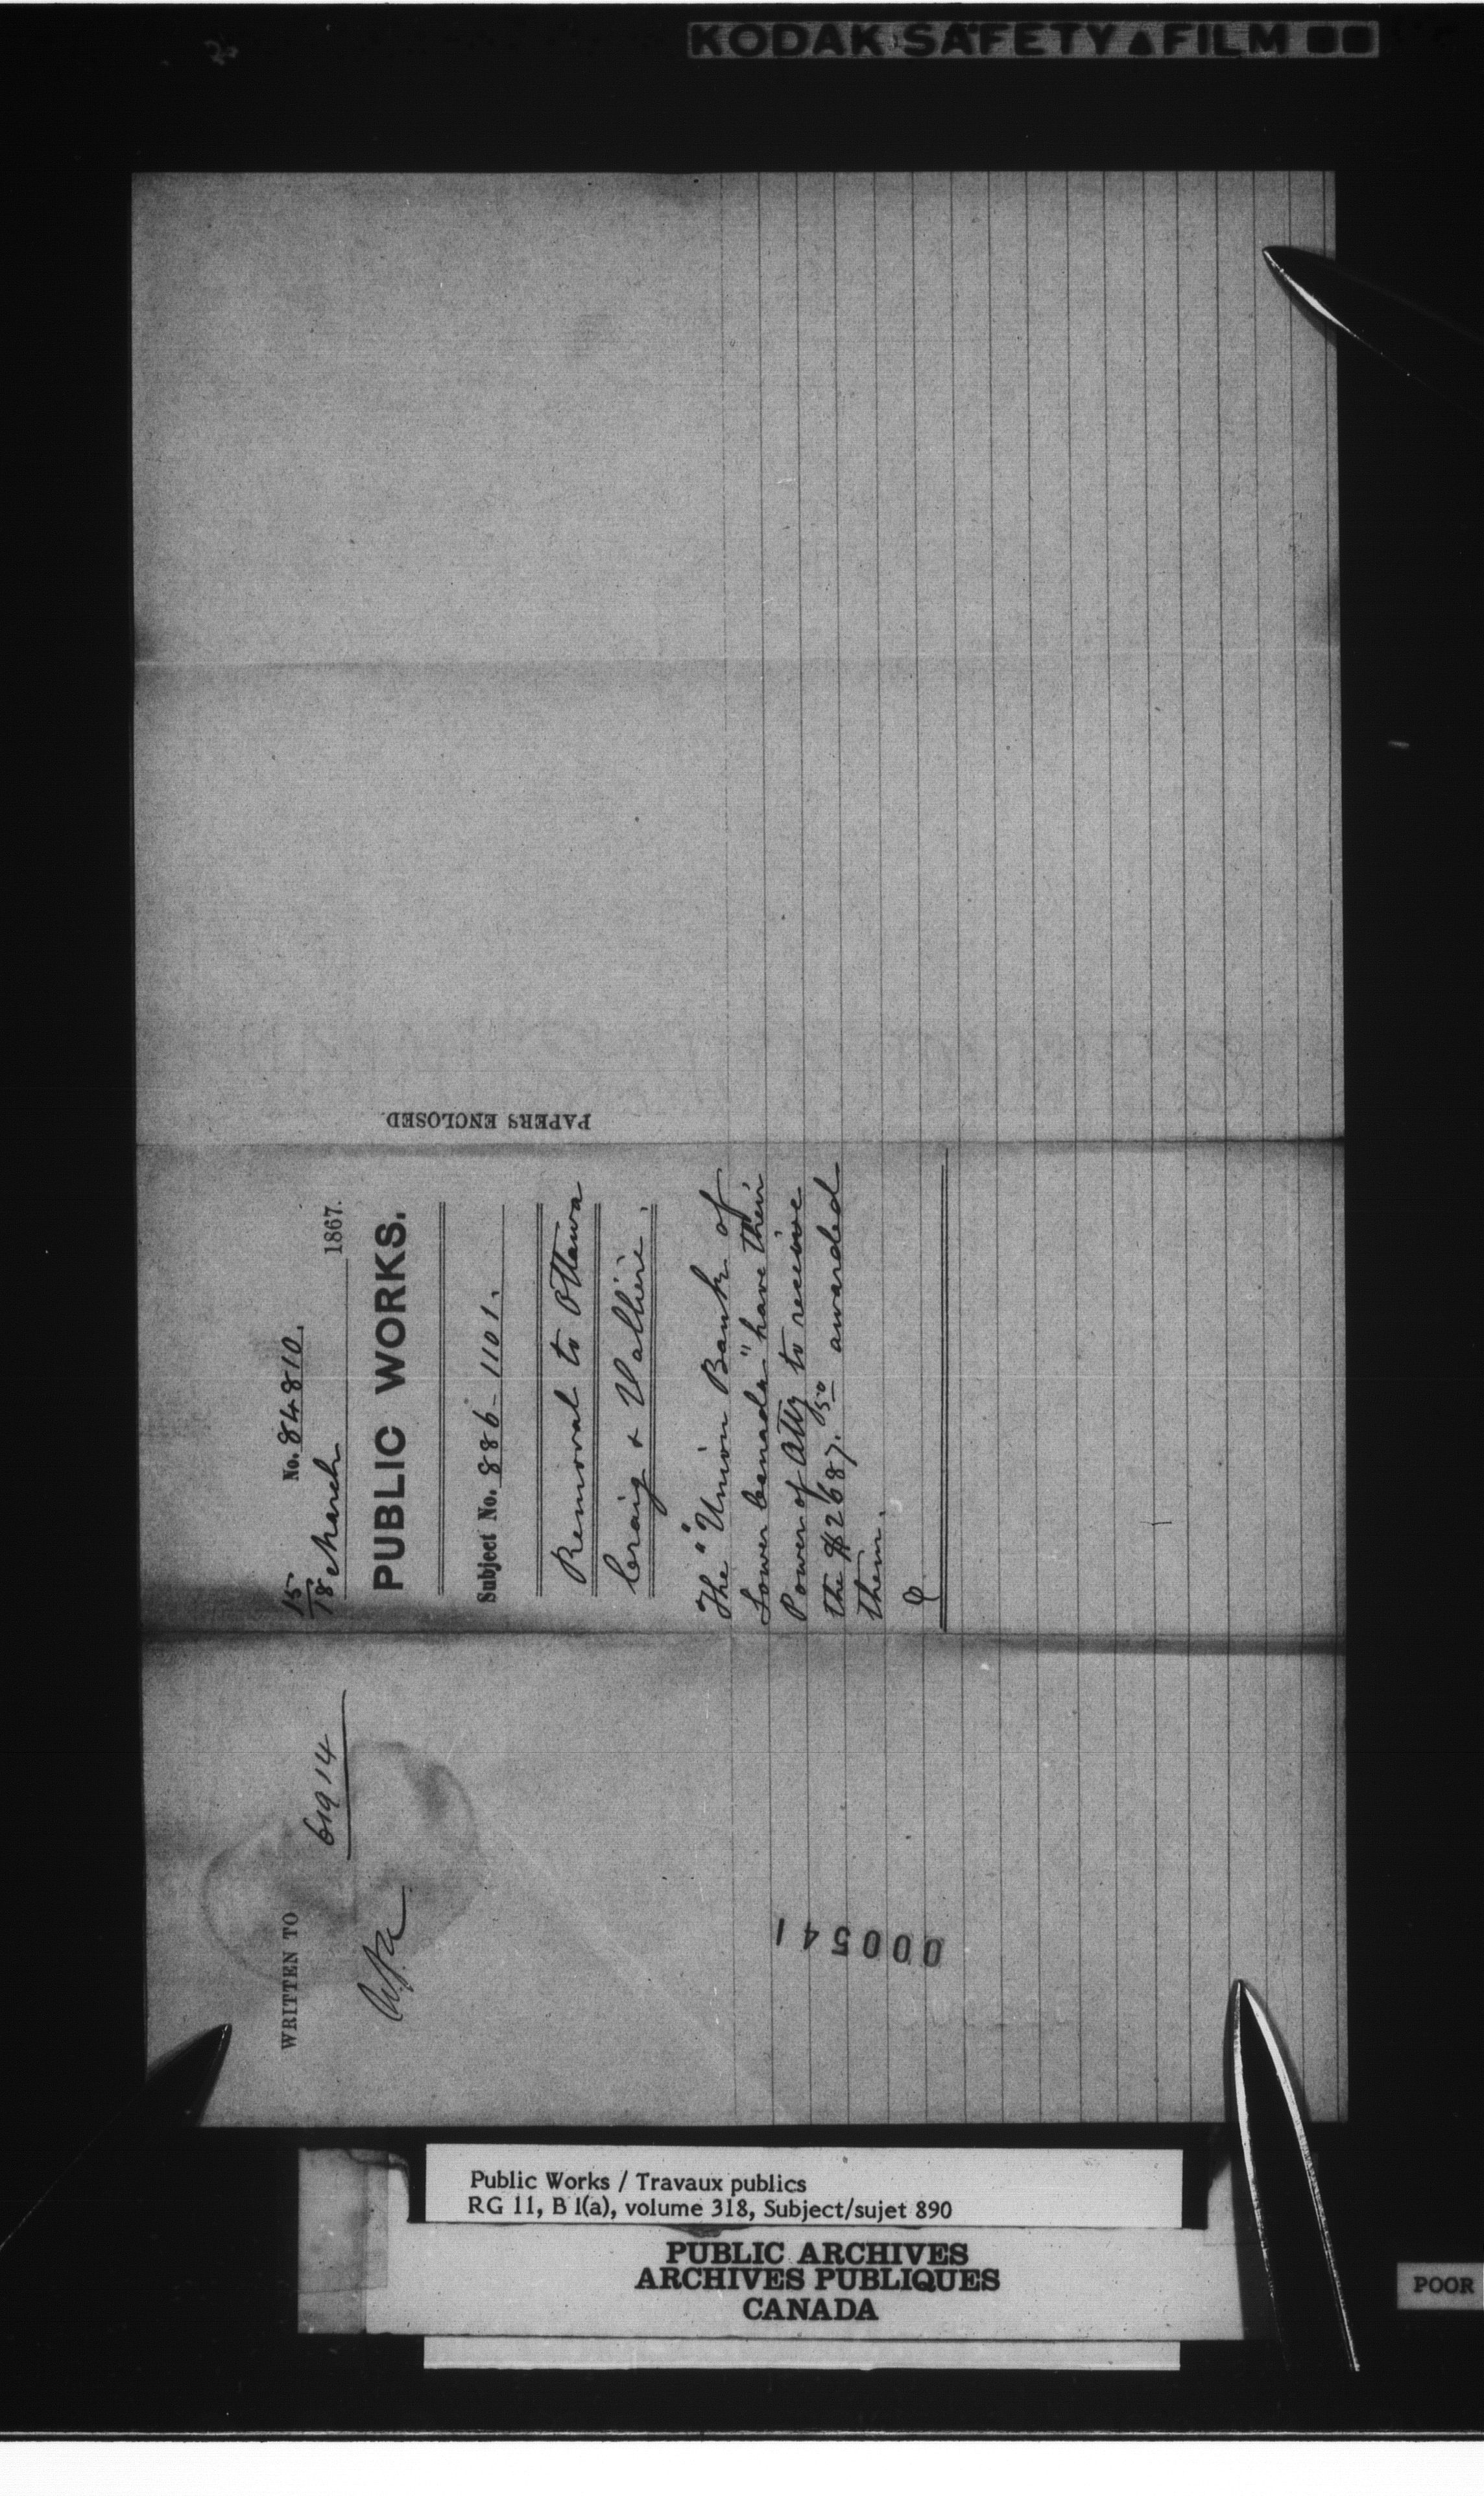 KODAK SAFETY FILM
No. 84810.
15
18 March 1867.
PUBLIC WORKS.
Subject No. 886-1101.
Removal to Ottawa
Craig & Vallière.
The "Union Bank of
Lower Canada" have their
Power of Atty to receive
the $2687.50 awarded
them.
PAPERS ENCLOSED.
WRITTEN TO
61914
000541
Public Works / Travaux publics
RG 11, B 1(a), volume 318, Subject/sujet 890
PUBLIC ARCHIVES
ARCHIVES PUBLIQUES
CANADA
POOR